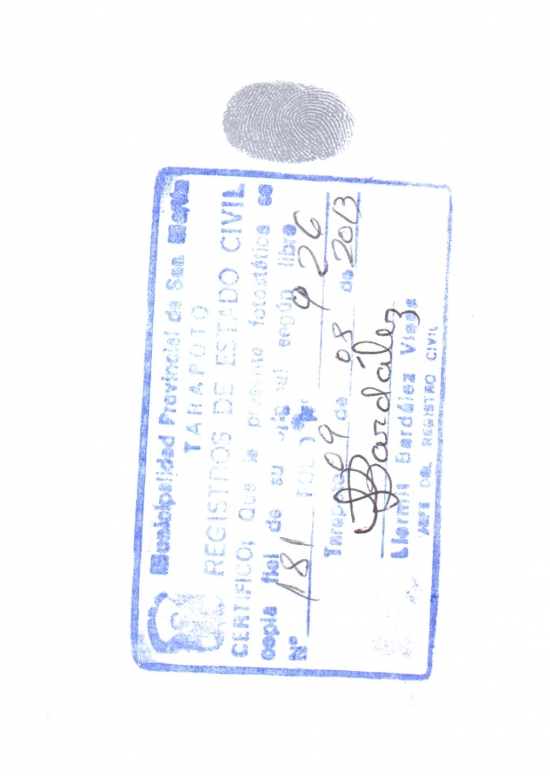 Municipalidad Provincial de San Martín
TARAPOTO
REGISTROS DE ESTADO CIVIL
CERTIFICO; Que la presente fotostática es
copia fiel de su original según libro
N° 181 FOLIO 926
Tarapoto 09 de 08 de 2013
Bardález
Llermit Bardález Viena
JEFE DEL REGISTRO CIVIL